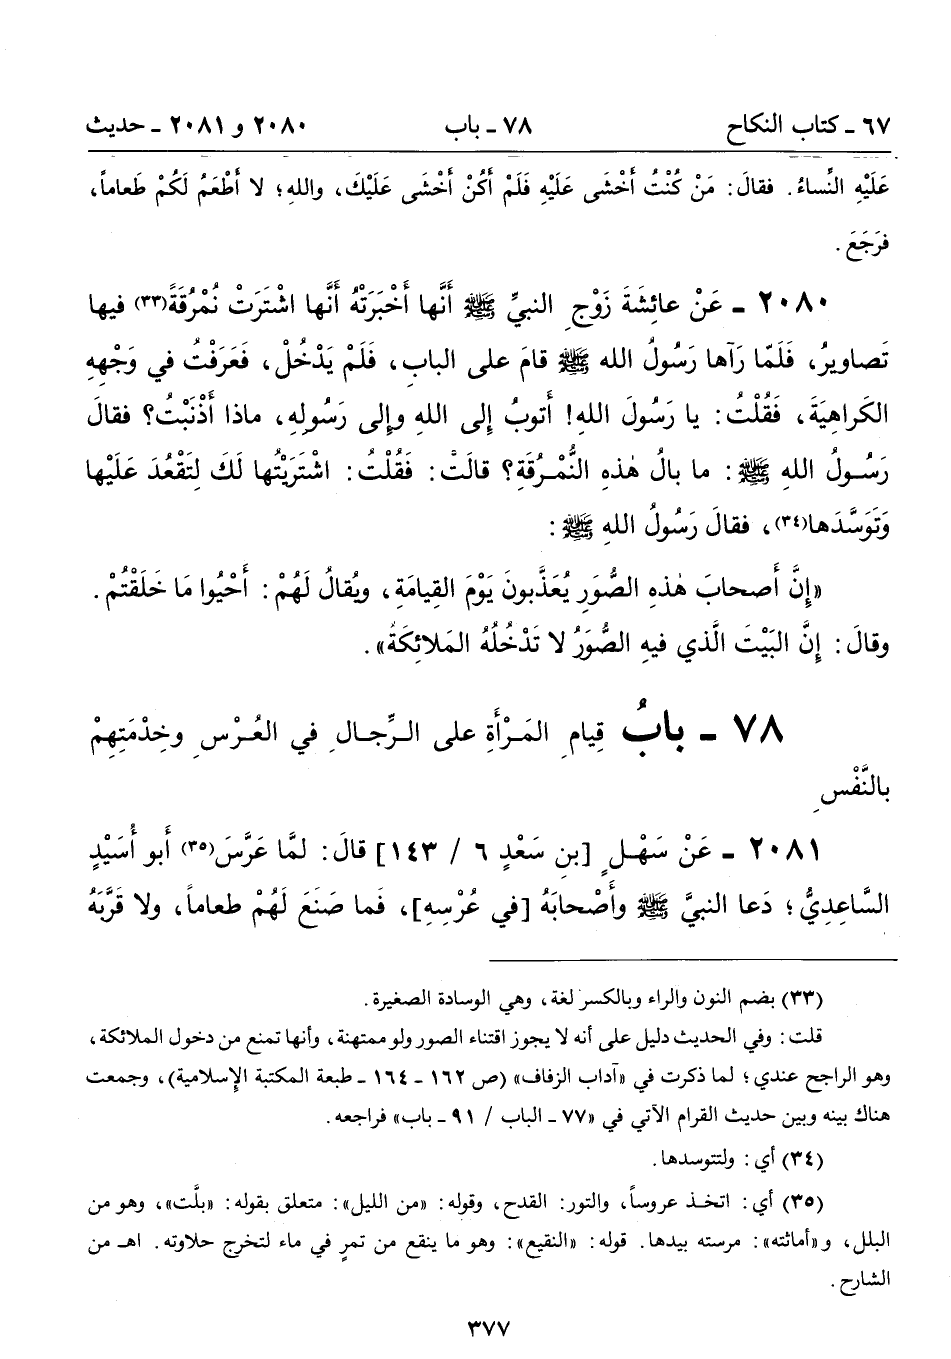 ٦٧ - كتاب النكاح ٧٨ - باب ٢٠٨٠ و ٢٠٨١ - حديث
عَلَيْهِ النِّساءُ. فقالَ: مَنْ كُنْتُ أَخْشى عَلَيْهِ فَلَمْ أَكُنْ أَخْشى عَلَيْكَ، واللهِ؛ لا أَطْعَمُ لَكُمْ طَعاماً،
فرَجَعَ.
٢٠٨٠ - عَنْ عائِشَةَ زَوْجِ النبيِّ ﷺ أَنَّها أَخْبَرَتْهُ أَنَّها اشْتَرَتْ نُمْرُقَةً(٣٣) فيها
تَصاويرُ، فَلَمّا رَآها رَسُولُ اللهِ ﷺ قامَ على البابِ، فَلَمْ يَدْخُلْ، فَعَرَفْتُ في وَجْهِهِ
الكَراهِيَةَ، فَقُلْتُ: يا رَسُولَ اللهِ! أَتوبُ إِلى اللهِ وإِلى رَسُولِهِ، ماذا أَذْنَبْتُ؟ فقالَ
رَسُولُ اللهِ ﷺ: ما بالُ هٰذهِ النُّمْرُقَةِ؟ قالَتْ: فَقُلْتُ: اشْتَرَيْتُها لَكَ لِتَقْعُدَ عَلَيْها
وَتَوَسَّدَها(٣٤)، فقالَ رَسُولُ اللهِ ﷺ:
«إِنَّ أَصحابَ هٰذهِ الصُّوَرِ يُعَذَّبونَ يَوْمَ القِيامَةِ، ويُقالُ لَهُمْ: أَحْيُوا مَا خَلَقْتُمْ.
وقالَ: إِنَّ البَيْتَ الَّذي فيهِ الصُّوَرُ لا تَدْخُلُهُ المَلائِكَةُ».
٧٨ - بابُ قِيامِ المَرْأَةِ على الرِّجالِ في العُرْسِ وخِدْمَتِهِمْ
بالنَّفْسِ
٢٠٨١ - عَنْ سَهْلٍ [بنِ سَعْدٍ ٦ / ١٤٣] قالَ: لمَّا عَرَّسَ(٣٥) أَبو أُسَيْدٍ
السَّاعِدِيُّ؛ دَعا النبيَّ ﷺ وأَصْحابَهُ [في عُرْسِهِ]، فَما صَنَعَ لَهُمْ طعاماً، ولا قَرَّبَهُ
(٣٣) بضم النون والراء وبالكسر لغة، وهي الوسادة الصغيرة.
قلت: وفي الحديث دليل على أنه لا يجوز اقتناء الصور ولو ممتهنة، وأنها تمنع من دخول الملائكة،
وهو الراجح عندي؛ لما ذكرت في «آداب الزفاف» (ص ١٦٢ - ١٦٤ - طبعة المكتبة الإسلامية)، وجمعت
هناك بينه وبين حديث القرام الآتي في «٧٧ - الباب / ٩١ - باب» فراجعه.
(٣٤) أي: ولتتوسدها.
(٣٥) أي: اتخذ عروساً، والتور: القدح، وقوله: «من الليل»: متعلق بقوله: «بلَّت»، وهو من
البلل، و«أماثته»: مرسته بيدها. قوله: «النقيع»: وهو ما ينقع من تمرٍ في ماء لتخرج حلاوته. اهـ من
الشارح.
٣٧٧